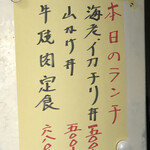 本日のランチ
海老イカチリ丼
山かけ丼 五〇〇
牛焼肉定食